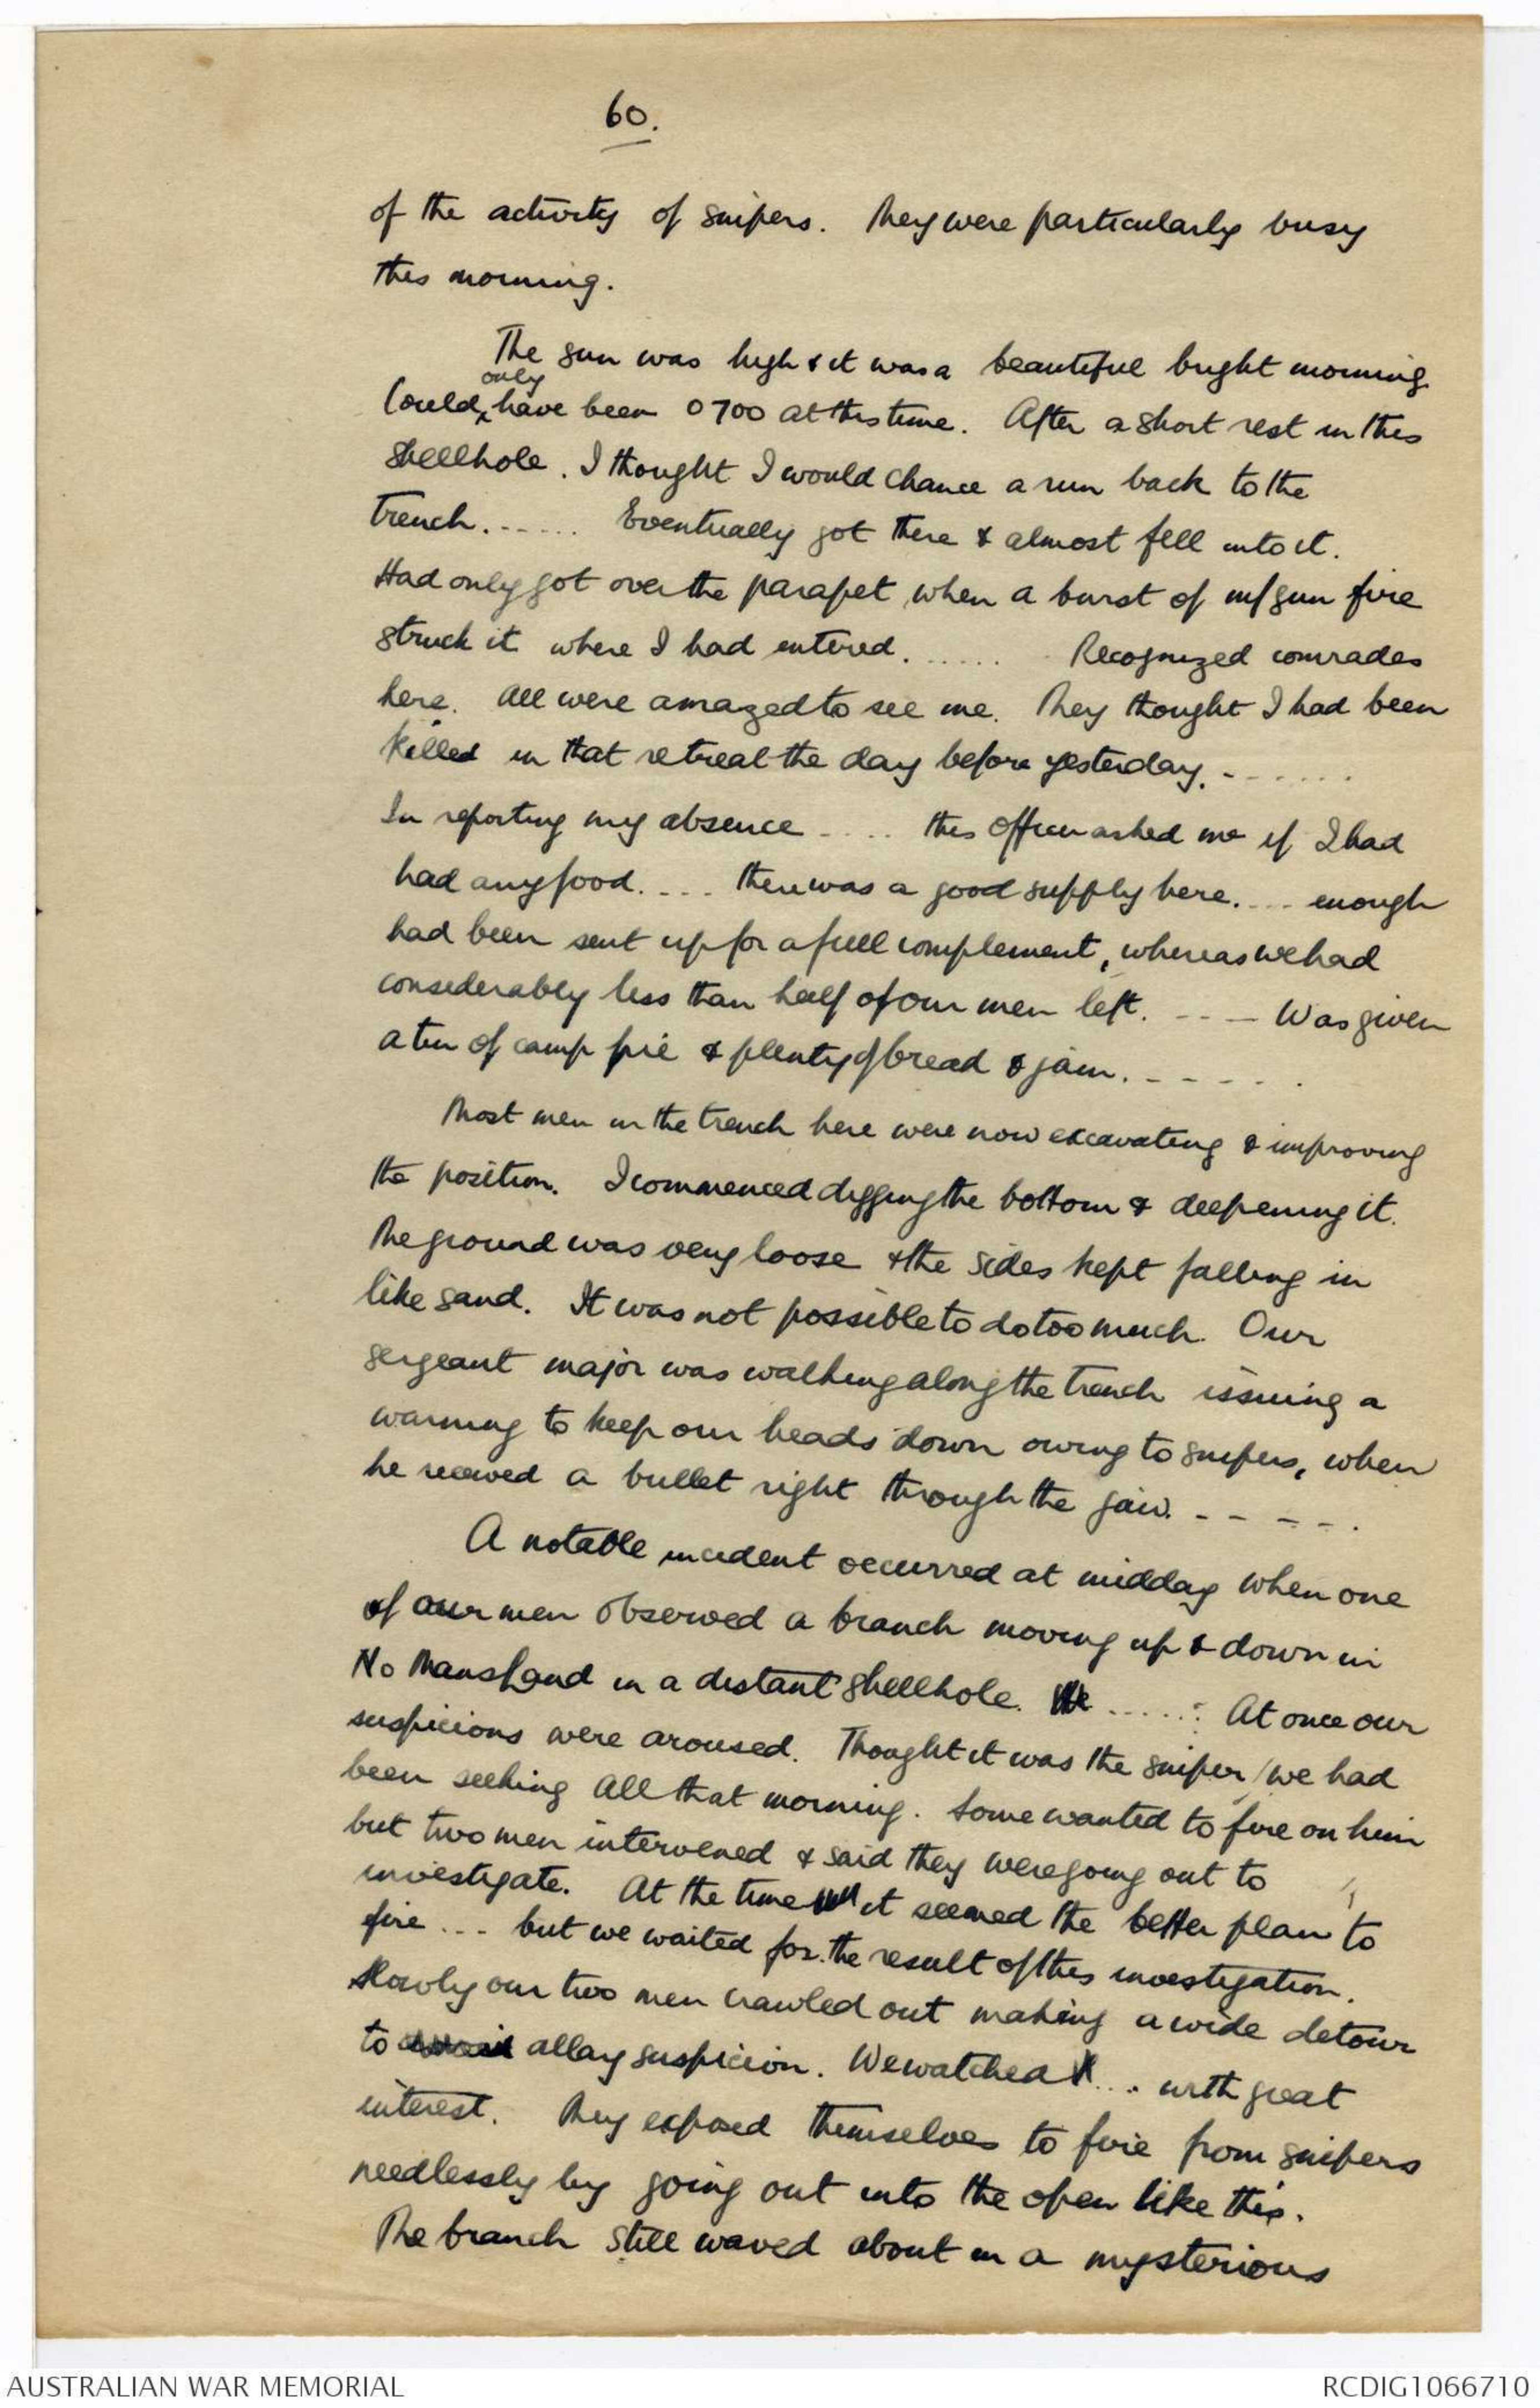 60.
of the activity of snipers. They were particularly busy
this morning.
The sun was high & it was a beautiful bright morning.
Could only have been 0700 at this time. After a short rest in this
shellhole. I thought I would chance a run back to the
trench. ...... Eventually got there & almost fell into it.
Had only got over the parapet when a burst of m/gun fire
struck it where I had entered. ...... Recognized comrades
here. All were amazed to see me. They thought I had been
killed in that retreat the day before yesterday. .......
In reporting my absence .... this officer asked me if I had
had any food. .... there was a good supply here. .... enough
had been sent up for a full complement, whereas we had
considerably less than half of our men left. --- Was given
a tin of camp pie & plenty of bread & jam. ------
Most men in the trench here were now excavating & improving
the position. I commenced digging the bottom & deepening it.
The ground was very loose & the sides kept falling in
like sand. It was not possible to do too much. Our
sergeant major was walking along the trench issuing a
warning to keep our heads down owing to snipers, when
he received a bullet right through the jaw. -----
A notable incident occurred at midday when one
of our men observed a branch moving up & down in
No Mans Land in a distant shellhole. We ...... At once our
suspicions were aroused. Thought it was the sniper we had
been seeking all that morning. Some wanted to fire on him
but two men intervened & said they were going out to
investigate. At the time it seemed the better plan to
fire ... but we waited for the result of this investigation.
Slowly our two men crawled out making a wide detour
to allay suspicion. We watched ... with great
interest. They exposed themselves to fire from snipers
needlessly by going out into the open like this.
The branch still waved about in a mysterious
AUSTRALIAN WAR MEMORIAL
RCDIG1066710